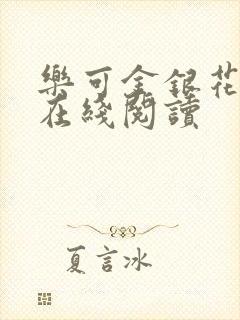 樂可金銀花
在綫閱讀
夏言冰